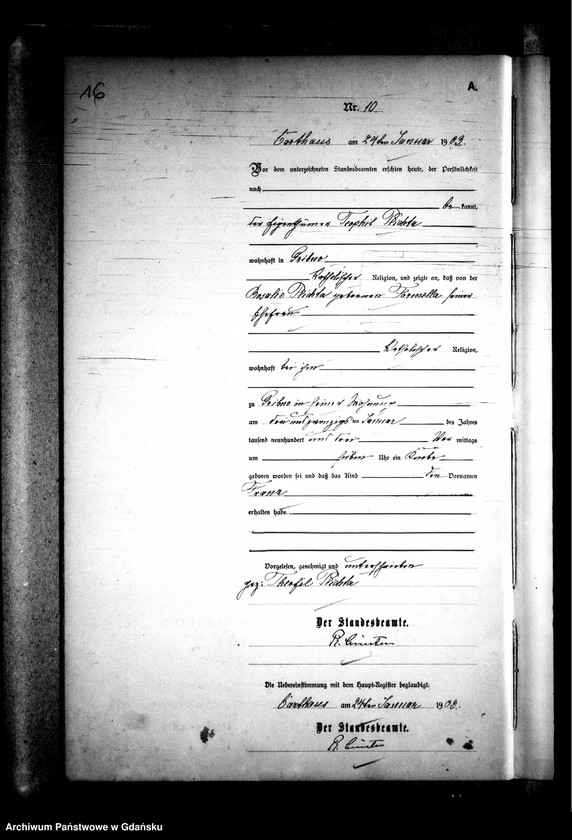 16
A.
Nr. 10.
Carthaus am 24ten Januar 1903.
Vor dem unterzeichneten Standesbeamten erschien heute, der Persönlichkeit
nach
be kannt,
der Eigenthümer Teophil
wohnhaft in
katholischer Religion, und zeigte an, daß von der
Rosalie geborenen Formella seiner
Ehefrau
katholischer Religion,
wohnhaft bei ihm
zu in seiner Wohnung
am dreiundzwanzigsten Januar des Jahres
tausend neunhundert und drei Vor mittags
um sieben Uhr ein Knabe
geboren worden sei und daß das Kind den Vornamen
Franz
erhalten habe.
Vorgelesen, genehmigt und unterschrieben
gez: Theofil
Der Standesbeamte.
Die Uebereinstimmung mit dem Haupt-Register beglaubigt.
Carthaus am 24ten Januar 1903.
Der Standesbeamte.
Archiwum Państwowe w Gdańsku